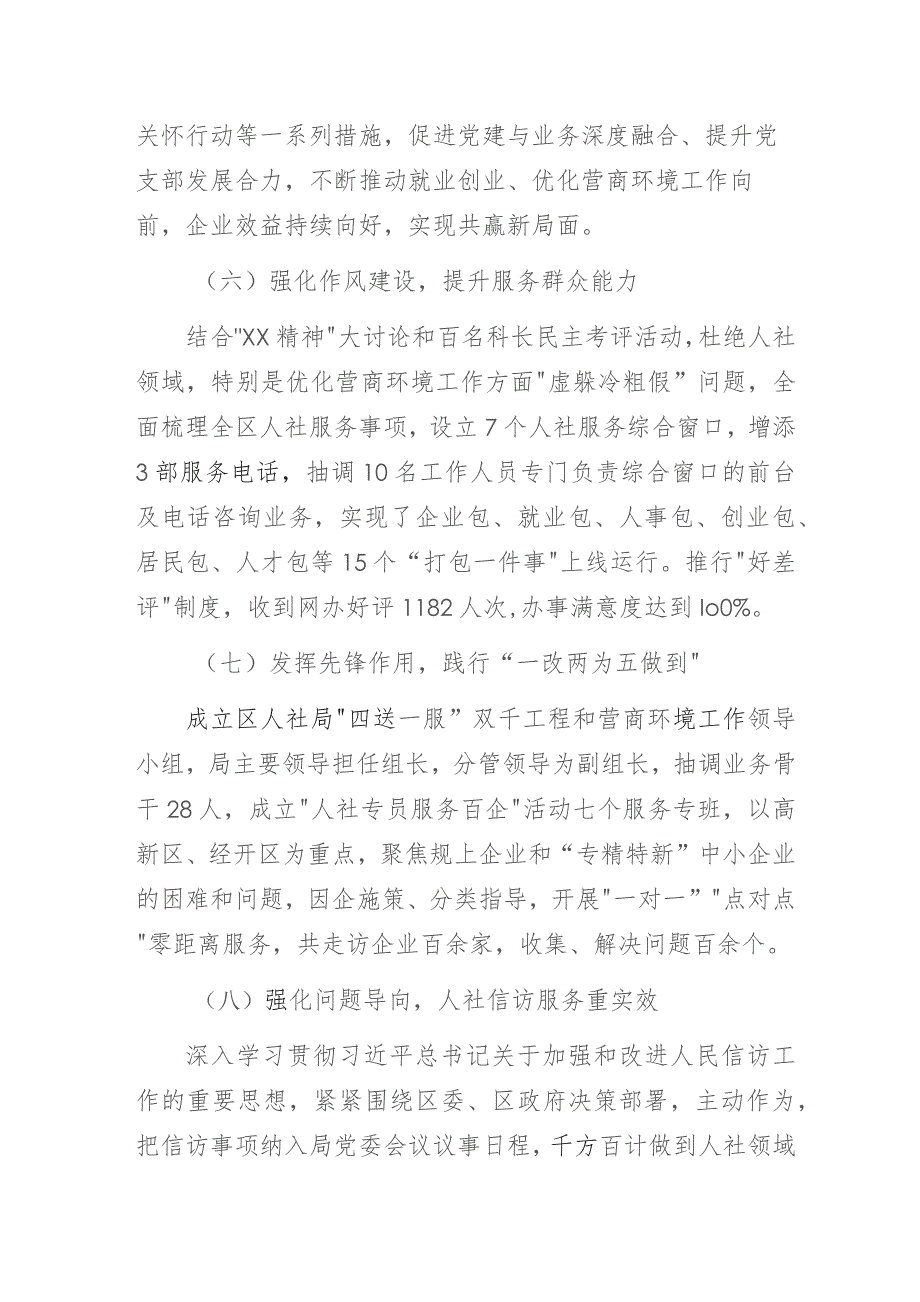 关怀行动等一系列措施，促进党建与业务深度融合、提升党
支部发展合力，不断推动就业创业、优化营商环境工作向
前，企业效益持续向好，实现共赢新局面。
（六）强化作风建设，提升服务群众能力
结合"XX 精神"大讨论和百名科长民主考评活动,杜绝人社
领域，特别是优化营商环境工作方面"虚躲冷粗假”问题，全
面梳理全区人社服务事项，设立 7 个人社服务综合窗口，增添
3 部服务电话，抽调 10 名工作人员专门负责综合窗口的前台
及电话咨询业务，实现了企业包、就业包、人事包、创业包、
居民包、人才包等 15 个“打包一件事"上线运行。推行"好差
评"制度，收到网办好评 1182 人次,办事满意度达到 Io0%。
（七）发挥先锋作用，践行“一改两为五做到"
成立区人社局"四送一服”双千工程和营商环境工作领导
小组，局主要领导担任组长，分管领导为副组长，抽调业务骨
干 28 人，成立"人社专员服务百企"活动七个服务专班，以高
新区、经开区为重点，聚焦规上企业和“专精特新”中小企业
的困难和问题，因企施策、分类指导，开展"一对一”"点对点
"零距离服务，共走访企业百余家，收集、解决问题百余个。
（八）强化问题导向，人社信访服务重实效
深入学习贯彻习近平总书记关于加强和改进人民信访工
作的重要思想，紧紧围绕区委、区政府决策部署，主动作为，
把信访事项纳入局党委会议议事日程，千方百计做到人社领域